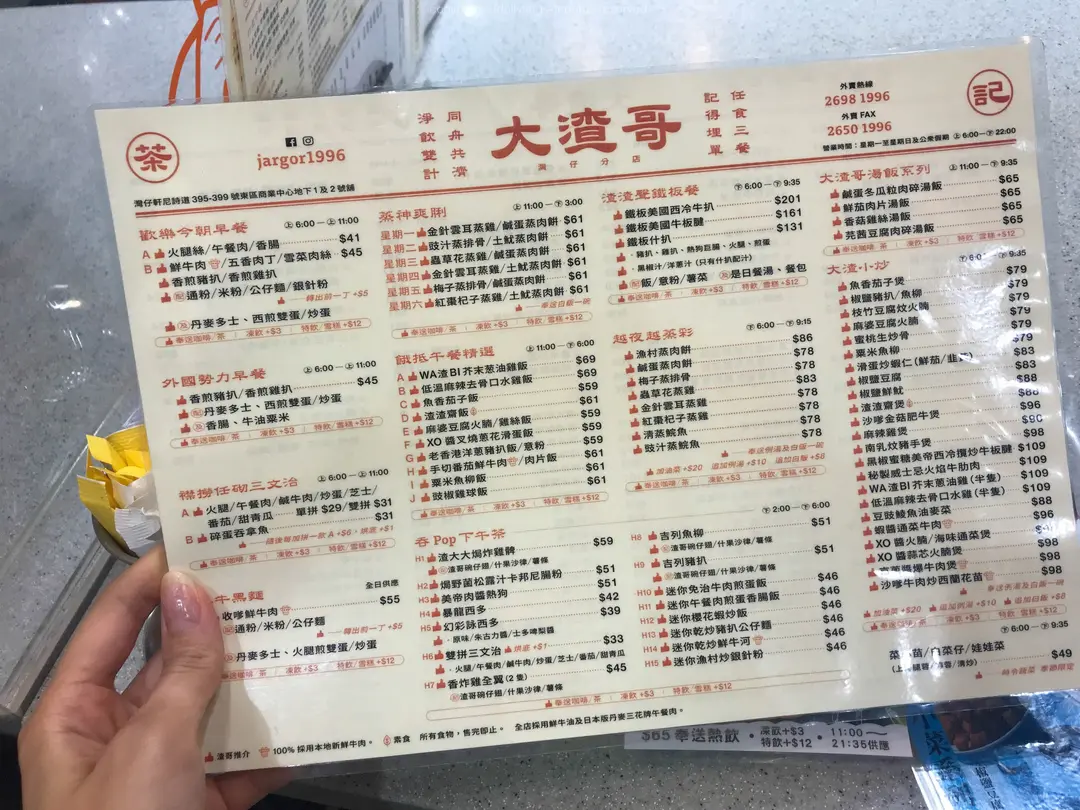 茶
jargor1996
淨飲雙計
同舟共濟
大渣哥
灣仔分店
記得埋單
任食三餐
外賣熱線
2698 1996
外賣 FAX
2650 1996
記
營業時間：星期一至星期日及公眾假期 上 6:00—下 22:00
灣仔軒尼詩道 395-399 號東區商業中心地下 1 及 2 號舖
歡樂今朝早餐 上 6:00 — 上 11:00
A 火腿絲/午餐肉/香腸 $41
B 鮮牛肉/五香肉丁/雪菜肉絲 $45
香煎豬扒/香煎雞扒
配 通粉/米粉/公仔麵/銀針粉
轉出前一丁 +$5
及 丹麥多士、西煎雙蛋/炒蛋
奉送咖啡/茶 凍飲+$3 特飲/雪糕+$12
外國勢力早餐 上 6:00 — 上 11:00
香煎豬扒/香煎雞扒 $45
及 丹麥多士、西煎雙蛋/炒蛋
香腸、牛油粟米
奉送咖啡/茶 凍飲+$3 特飲/雪糕+$12
襟撈任砌三文治 上 6:00 — 上 11:00
A 火腿/午餐肉/鹹牛肉/炒蛋/芝士/
番茄/甜青瓜 單拼 $29/雙拼 $31
B 碎蛋吞拿魚 $31
奉送咖啡/茶 凍飲+$3 特飲/雪糕+$12
全日供應
牛黑麵
收嗲鮮牛肉 $55
通粉/米粉/公仔麵
轉出前一丁 +$5
丹麥多士、火腿煎雙蛋/炒蛋
凍飲+$3 特飲/雪糕+$12
蒸神爽脷 上 11:00 — 下 3:00
星期一 金針雲耳蒸雞/鹹蛋蒸肉餅 $61
星期二 豉汁蒸排骨/土魷蒸肉餅 $61
星期三 蟲草花蒸雞/鹹蛋蒸肉餅 $61
星期四 金針雲耳蒸雞/土魷蒸肉餅 $61
星期五 梅子蒸排骨/鹹蛋蒸肉餅 $61
星期六 紅棗杞子蒸雞/土魷蒸肉餅 $61
奉送白飯一碗
奉送咖啡/茶 凍飲+$3 特飲/雪糕+$12
餓抵午餐精選 上 11:00 — 下 6:00
A WA渣BI芥末蔥油雞飯 $69
B 低溫麻辣去骨口水雞飯 $69
C 魚香茄子飯 $59
D 渣渣齋飯 $61
E 麻婆豆腐火腩/雞絲飯 $59
F XO 醬叉燒蔥花滑蛋飯 $59
G 老香港洋蔥豬扒飯/意粉 $59
H 手切番茄鮮牛肉/肉片飯 $61
I 粟米魚柳飯 $59
J 豉椒雞球飯 $61
奉送咖啡/茶 凍飲+$3 特飲/雪糕+$12
渣渣聲鐵板餐 下 6:00 — 下 9:35
鐵板美國西冷牛扒 $201
鐵板美國牛板腱 $161
鐵板什扒 $131
· 豬扒、雞扒、熱狗巨腸、火腿、煎蛋
· 黑椒汁/洋蔥汁 (只有什扒配汁)
配 飯/意粉/薯菜 及 是日餐湯、餐包
奉送咖啡/茶 凍飲+$3 特飲/雪糕+$12
越夜越蒸彩 下 6:00 — 下 9:15
漁村蒸肉餅 $86
鹹蛋蒸肉餅 $78
梅子蒸排骨 $78
蟲草花蒸雞 $83
金針雲耳蒸雞 $78
紅棗杞子蒸雞 $78
清蒸鯇魚 $78
豉汁蒸鯇魚 $78
奉送例湯及白飯一碗
加油菜 +$20 追加例湯 +$10 追加白飯 +$8
奉送咖啡/茶 凍飲+$3 特飲/雪糕+$12
吞 Pop 下午茶 下 2:00 — 下 6:00
H1 渣大大焗炸雞髀 $59
渣哥碗仔翅/什果沙律/薯條
H2 焗野菌松露汁卡邦尼腸粉 $51
H3 美帝肉醬熱狗 $51
H4 暴龍西多 $42
H5 幻彩詠西多 $39
· 原味/朱古力醬/士多啤梨醬
H6 雙拼三文治 烘底 +$1 $33
· 火腿/午餐肉/鹹牛肉/炒蛋/芝士/番茄/甜青瓜
H7 香炸雞全翼 (2 隻) $45
渣哥碗仔翅/什果沙律/薯條
H8 吉列魚柳 $51
渣哥碗仔翅/什果沙律/薯條
H9 吉列豬扒 $51
渣哥碗仔翅/什果沙律/薯條
H10 迷你免治牛肉煎蛋飯 $46
H11 迷你午餐肉煎蛋香腸飯 $46
H12 迷你櫻花蝦炒飯 $46
H13 迷你乾炒豬扒公仔麵 $46
H14 迷你乾炒鮮牛河 $46
H15 迷你漁村炒銀針粉 $46
奉送咖啡/茶 凍飲+$3 特飲/雪糕+$12
大渣哥湯飯系列 上 11:00 — 下 9:35
鹹蛋冬瓜粒肉碎湯飯 $65
鮮茄肉片湯飯 $65
香菇雞絲湯飯 $65
芫茜豆腐肉碎湯飯 $65
奉送咖啡/茶 凍飲+$3 特飲/雪糕+$12
大渣·小炒 下 6:00 — 下 9:35
魚香茄子煲 $79
椒鹽豬扒/魚柳 $79
枝竹豆腐炆火腩 $79
麻婆豆腐火腩 $79
蜜桃生炒骨 $79
粟米魚柳 $79
滑蛋炒蝦仁 (鮮茄/韭 $83
椒鹽豆腐 $83
椒鹽鮮魷 $88
渣渣齋煲
沙嗲金菇肥牛煲
麻辣雞煲
南乳炆豬手煲 $98
黑椒蜜糖美帝西冷攬炒牛板腱 $109
秘製威士忌火焰牛肋肉 $109
WA渣BI芥末蔥油雞 (半隻) $109
低溫麻辣去骨口水雞 (半隻) $109
豆豉鯪魚油麥菜 $88
蝦醬通菜牛肉
XO 醬火腩/海味通菜煲 $98
XO 醬蒜芯火腩煲 $98
牛肉煲 $98
沙嗲牛肉炒西蘭花苗 $98
奉送例湯及白飯一碗
加油菜 +$20 追加例湯 +$10 追加白飯 +$8
奉送咖啡/茶 凍飲+$3 特飲/雪糕+$12
下 6:00 — 下 9:35
苗/白菜仔/娃娃菜 $49
渣哥推介 100% 採用本地新鮮牛肉。 素食 所有食物，售完即止。 全店採用鮮牛油及日本版丹麥三花牌午餐肉。
$65 奉送熱飲 · 凍飲+$3 特飲+$12 · 11:00～21:35供應